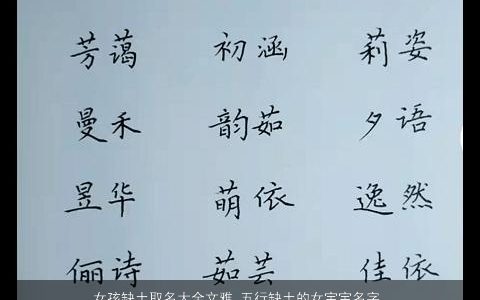 芳蔼 初涵 莉姿
曼禾 韵茹 夕语
昱华 萌依 逸然
俪诗 茹芸 佳依
女孩缺土取名大全文雅,五行缺土的女宝宝名字